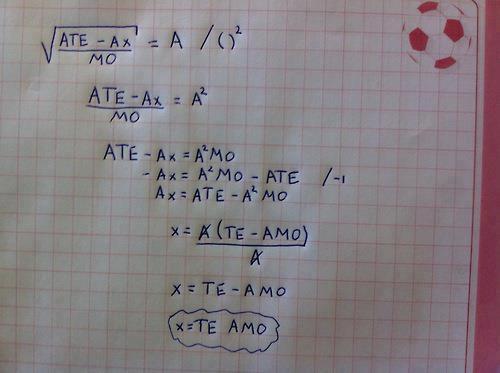 √(ATE - Ax / MO) = A / ( )²
ATE - Ax / MO = A²
ATE - Ax = A²MO
- Ax = A²MO - ATE /-1
Ax = ATE - A²MO
x = A(TE - AMO) / A
x = TE - AMO
x=TE AMO